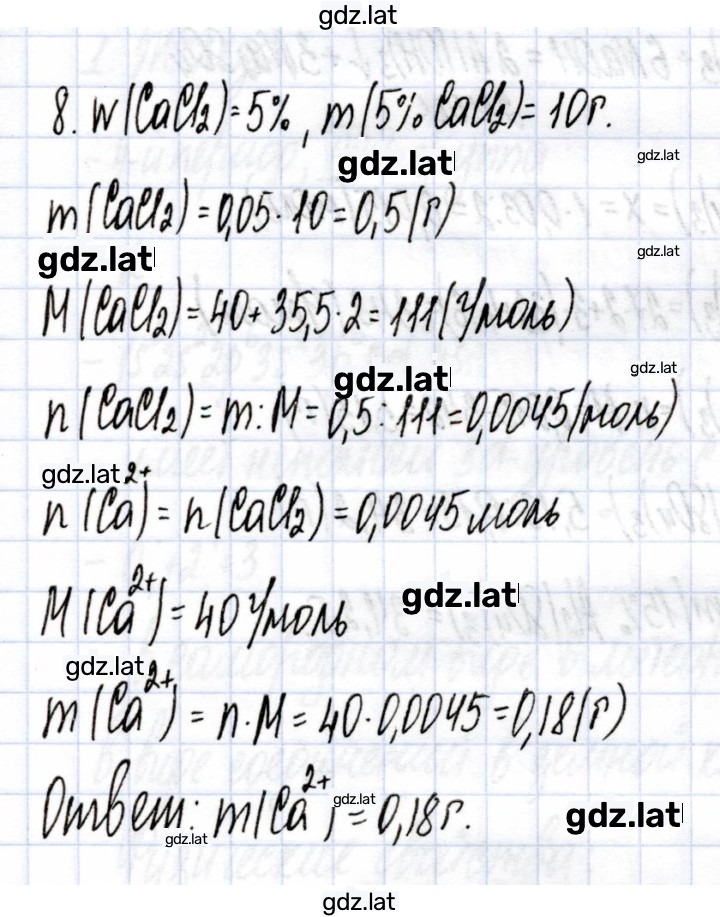 gdz.lat
8. w(CaCl₂) = 5%, m(5% CaCl₂) = 10г.
gdz.lat
gdz.lat
m(CaCl₂) = 0,05 · 10 = 0,5(г)
gdz.lat
gdz.lat
M(CaCl₂) = 40 + 35,5 · 2 = 111(г/моль)
gdz.lat
gdz.lat
n(CaCl₂) = m : M = 0,5 : 111 = 0,0045(моль)
gdz.lat
n(Ca²⁺) = n(CaCl₂) = 0,0045 моль
gdz.lat
M(Ca²⁺) = 40 г/моль
gdz.lat
m(Ca²⁺) = n · M = 40 · 0,0045 = 0,18(г)
gdz.lat
Ответ: m(Ca²⁺) = 0,18г.
gdz.lat
gdz.lat
gdz.lat